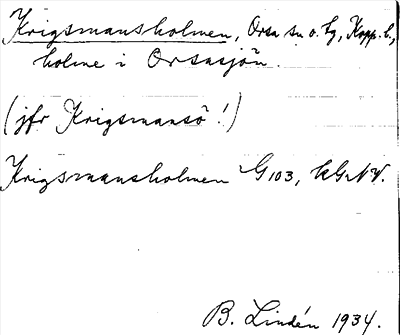 Krigsmansholmen, Orsa sn o. tg, Kopp. l.,
holme i Orsasjön.
(jfr Krigsmansö!)
Krigsmansholmen G103,
B. Lindén 1934.